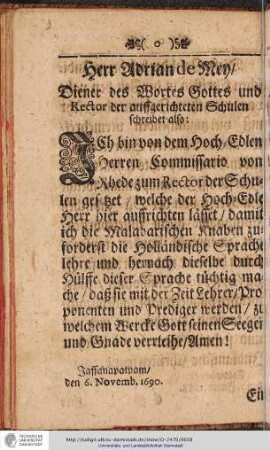 ( o )
Herr Adrian de Mey/
Diener des Wortes Gottes und
Rector der auffgerichteten Schulen
schreibet also:
ICh bin von dem Hoch-Edlen
Herren Commissario von
Rhede zum Rector der Schu-
len gesetzet / welche der Hoch-Edle
Herr hier auffrichten lässet / damit
ich die Malabarischen Knaben zu-
forderst die Holländische Sprache
lehre und hernach dieselbe durch
Hülffe dieser Sprache tüchtig ma-
che / daß sie mit der Zeit Lehrer/ Pro-
ponenten und Prediger werden / zu
welchem Wercke Gott seinen Seegen
und Gnade verrleihe/ Amen!
Jaffanapatnam/
den 6. Novemb. 1690.
TECHNISCHE
UNIVERSITÄT
DARMSTADT
http://tudigit.ulb.tu-darmstadt.de/show/
Universitäts- und Landesbibliothek Darmstadt